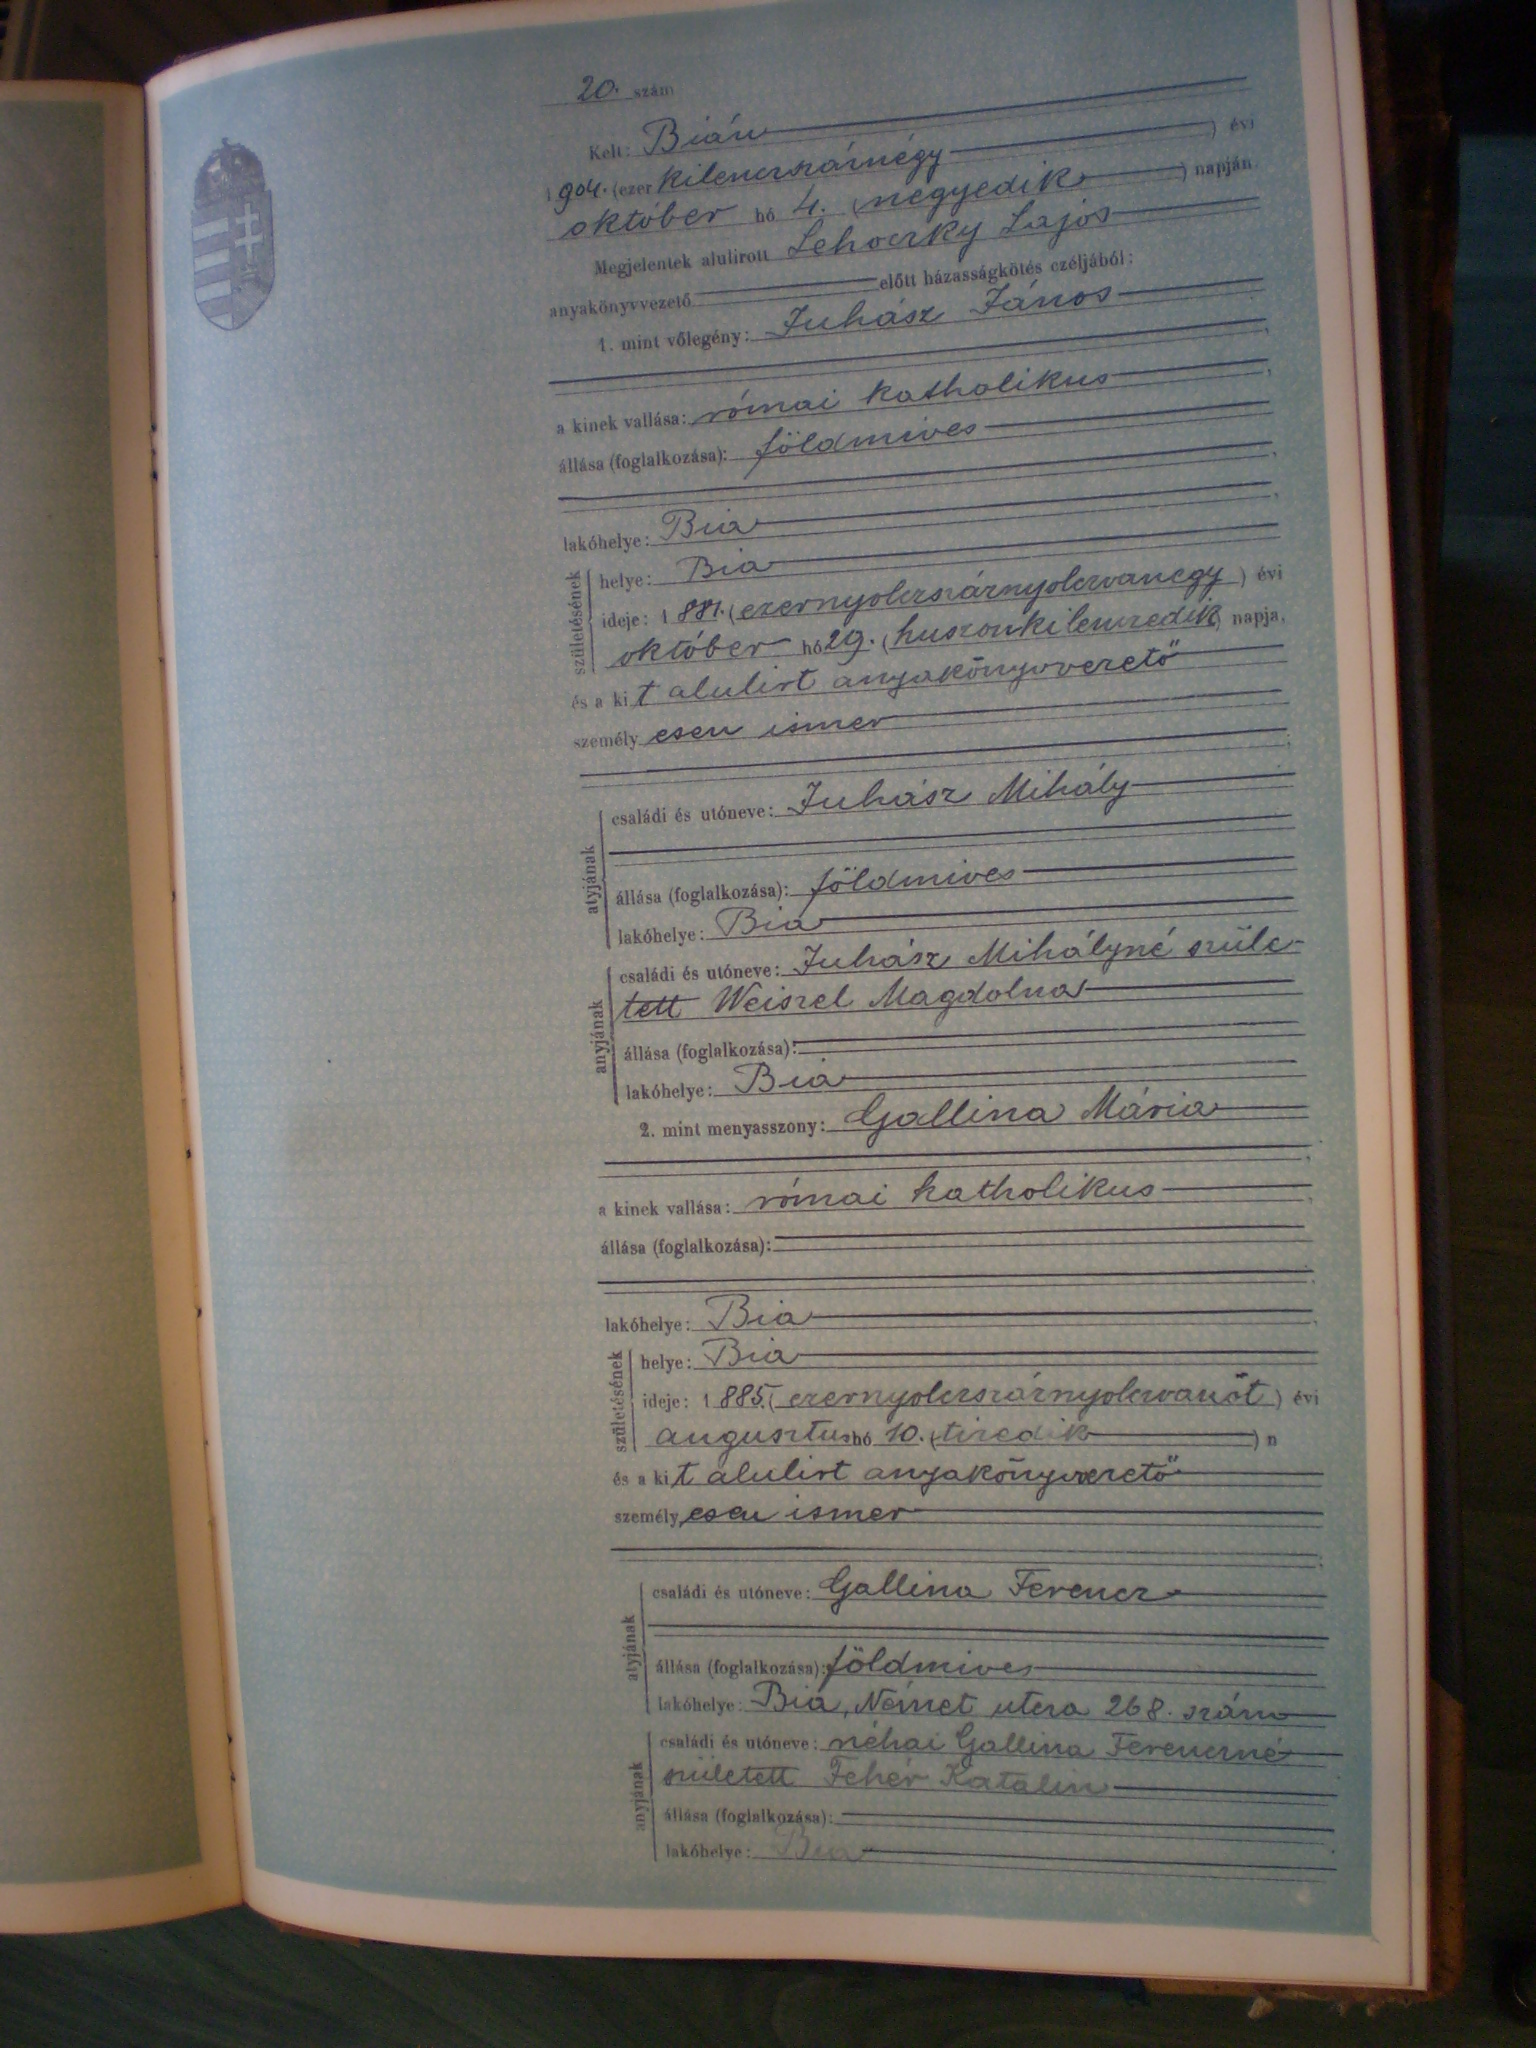 20. szám
Kelt: Bián
1904. (ezer kilenczszáznégy) évi
október hó 4. (negyedik) napján.
Megjelentek alulirott Lehoczky Lajos
anyakönyvvezető előtt házasságkötés czéljából:
1. mint vőlegény: Juhász János
a kinek vallása: római katholikus
állása (foglalkozása): földmives
lakóhelye: Bia
születésének
helye: Bia
ideje: 1881. (ezernyolczszáznyolczvanegy) évi
október hó 29. (huszonkilenczedik) napja,
és a kit alulirt anyakönyvvezető
személyesen ismer
atyjának
családi és utóneve: Juhász Mihály
állása (foglalkozása): földmives
lakóhelye: Bia
anyjának
családi és utóneve: Juhász Mihályné szüle-
tett Weiszel Magdolna
állása (foglalkozása):
lakóhelye: Bia
2. mint menyasszony: Gallina Mária
a kinek vallása: római katholikus
állása (foglalkozása):
lakóhelye: Bia
születésének
helye: Bia
ideje: 1885. (ezernyolczszáznyolczvanöt) évi
augusztus hó 10. (tizedik) n
és a kit alulirt anyakönyvvezető
személyesen ismer
atyjának
családi és utóneve: Gallina Ferencz
állása (foglalkozása): földmives
lakóhelye: Bia, Német utcza 268. szám
anyjának
családi és utóneve: néhai Gallina Ferenczné
született Fehér Katalin
állása (foglalkozása):
lakóhelye: Bia